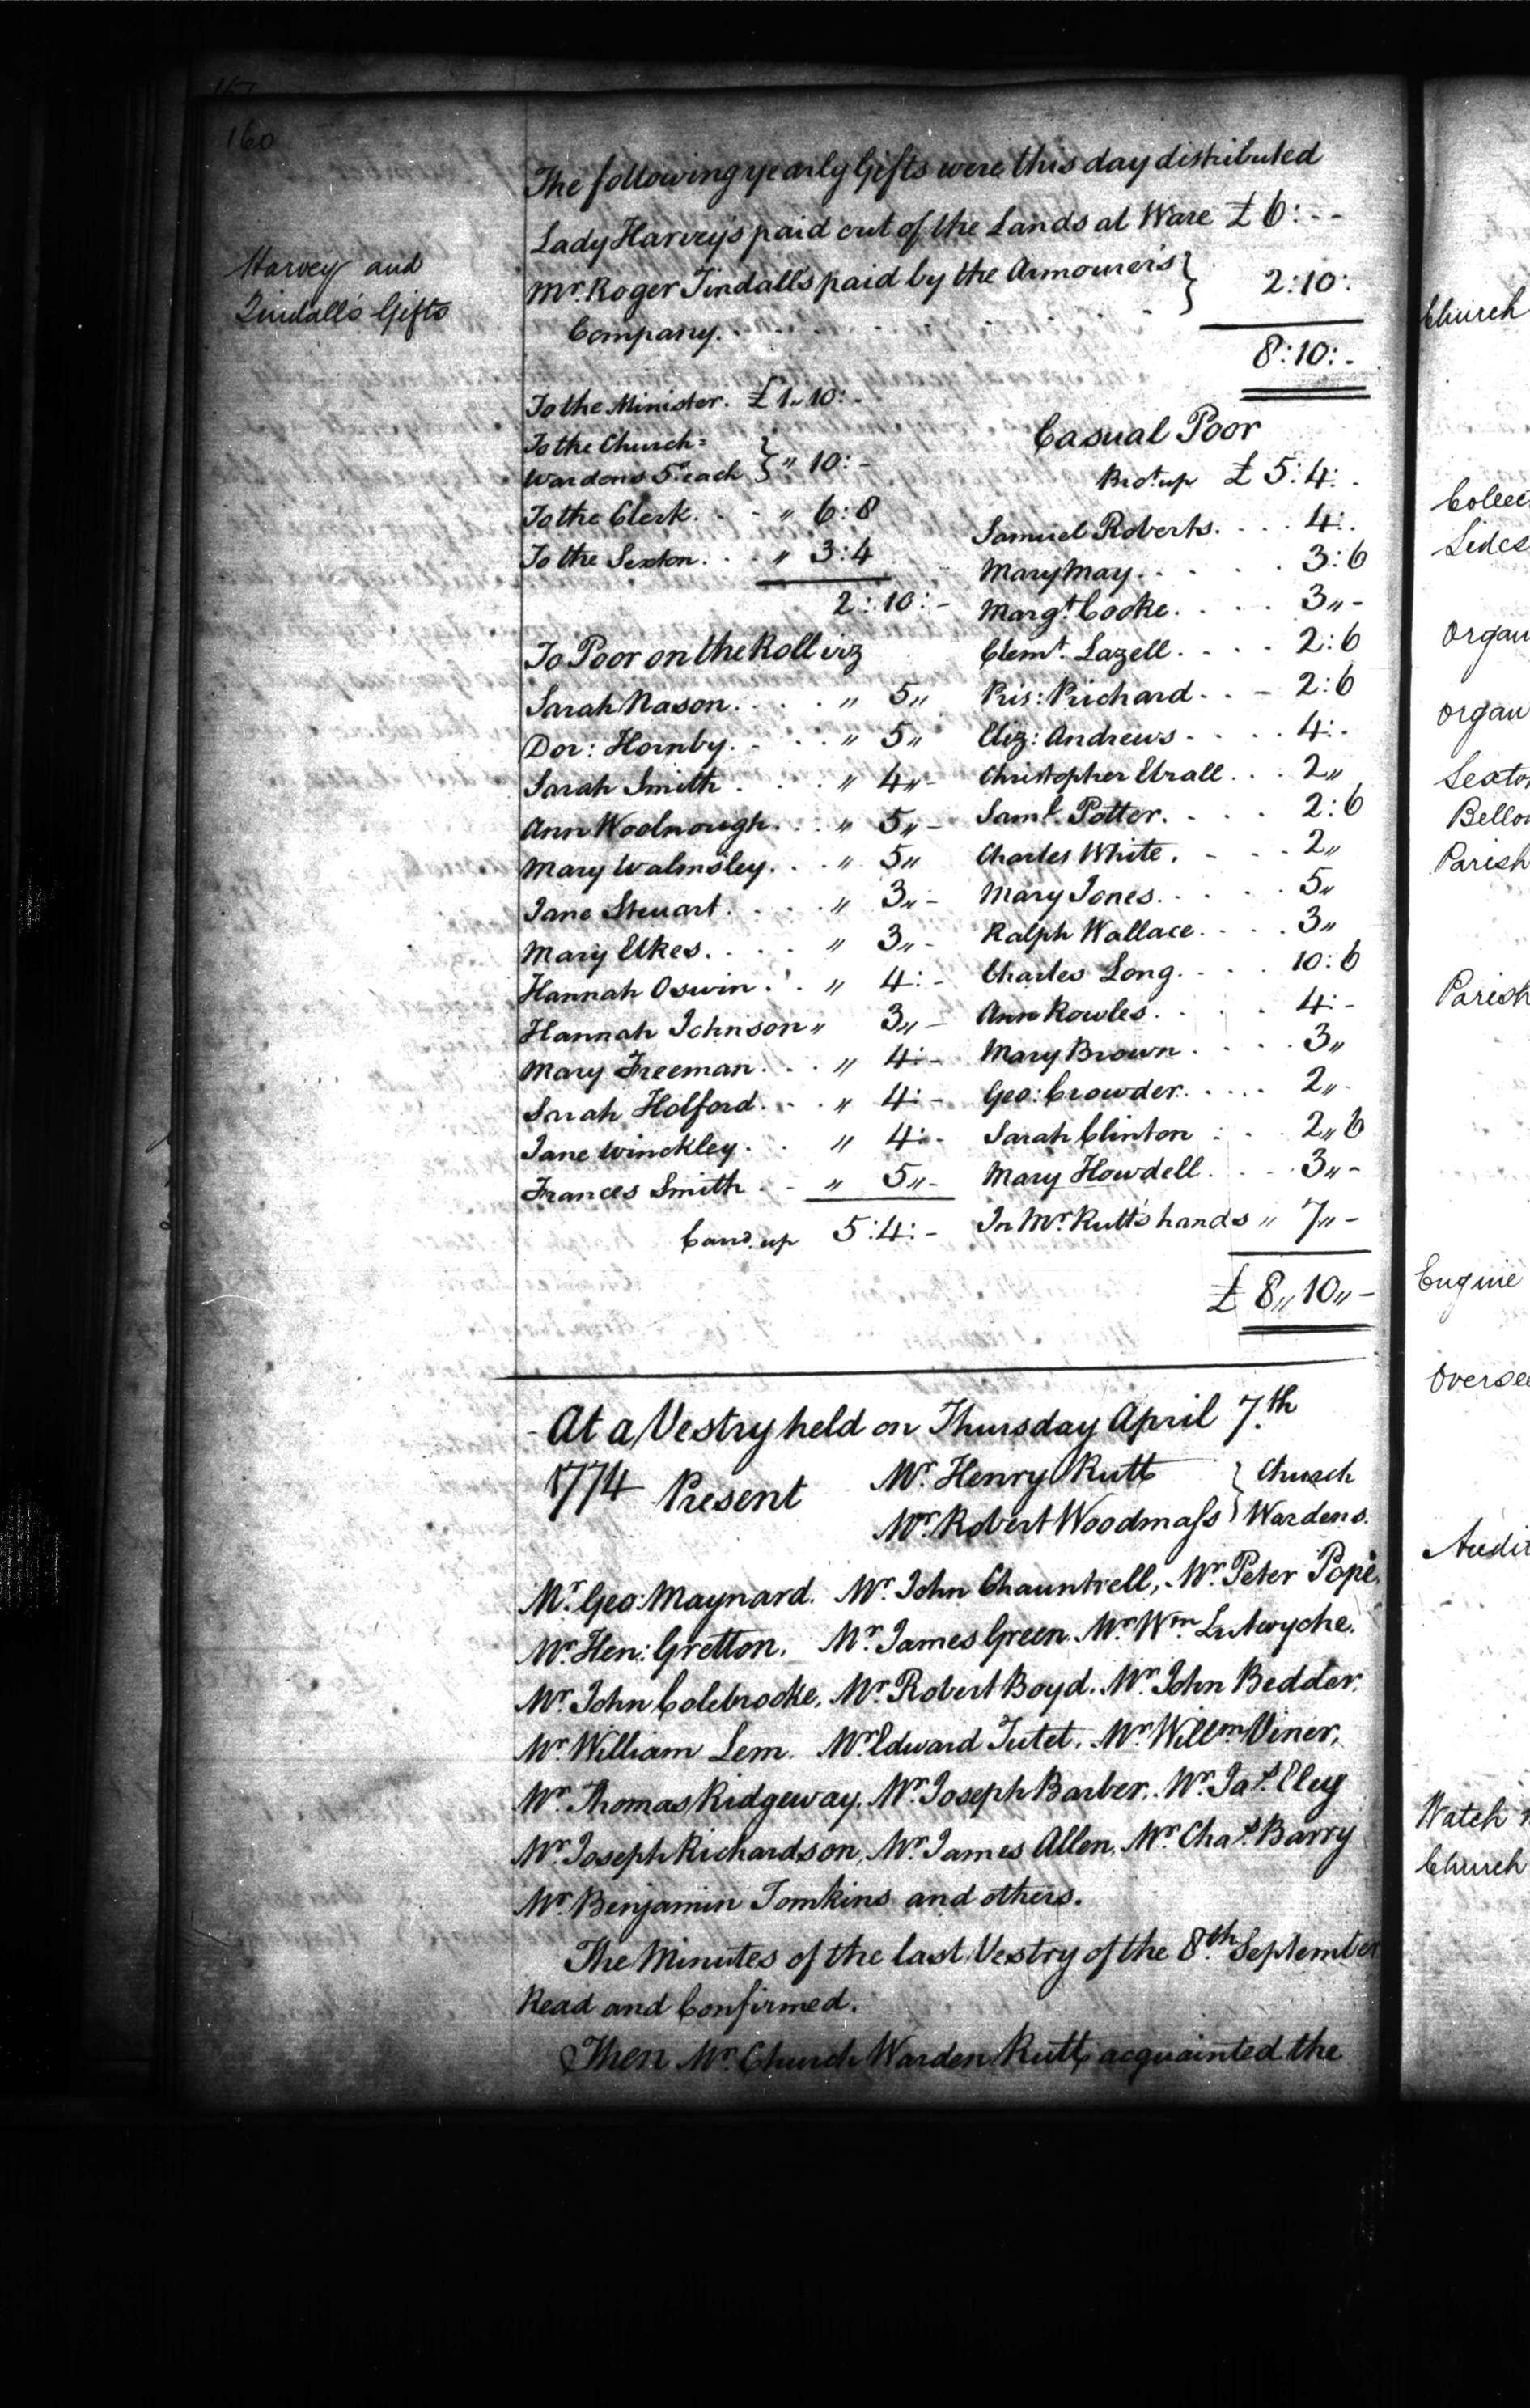 160
Harvey and
Tindall's Gifts
The following yearly Gifts were this day distributed
Lady Harvey's paid out of the Lands at Ware £ 6:--
Mr. Roger Tindall's paid by the Armourer's }
Company. 2:10:
8:10:-
To the Minister. £ 1„ 10:-
To the Church=
Wardens 5s. each } „ 10:-
To the Clerk. „ 6:8
To the Sexton. „ 3:4
2:10:-
To Poor on the Roll viz
Sarah Nason. „ 5„
Dor: Hornby. „ 5„
Sarah Smith. „ 4„-
Ann Woolnough. „ 5„-
Mary Walmsley. „ 5„
Jane Steuart. „ 3„-
Mary Elkes. „ 3„-
Hannah Oswin. „ 4:-
Hannah Johnson „ 3„-
Mary Freeman. „ 4:-
Sarah Holford. „ 4:-
Jane Winckley. „ 4:-
Frances Smith „ 5„-
Card. up 5:4:-
Casual Poor
Brot. up £ 5:4:.
Samuel Roberts. 4:.
Mary May. 3:6
Margt. Cooke. 3„-
Clemt. Lazell. 2:6
Pris: Prichard 2:6
Eliz: Andrews 4:-
Christopher Urall 2„
Saml. Potter. 2:6
Charles White. 2„
Mary Jones. 5„
Ralph Wallace 3„
Charles Long. 10:6
Ann Rowles. 4:-
Mary Brown 3„
Geo: Crowder. 2„
Sarah Clinton 2„6
Mary Howdell 3„-
In Mr. Rutt's hands „ 7„-
£ 8„ 10„-
At a Vestry held on Thursday April 7.th
1774 Present Mr. Henry Rutt } Church
Mr. Robert Woodmass } Wardens.
Mr. Geo: Maynard. Mr. John Chauntrell, Mr. Peter Pope,
Mr. Hen: Gretton, Mr. James Green. Mr. Wm. Lutwyche,
Mr. John Colebrooke, Mr. Robert Boyd. Mr. John Bedder,
Mr. William Lem. Mr. Edward Tutet. Mr. Willm. Viner,
Mr. Thomas Ridgeway, Mr. Joseph Barber, Mr. Jas. Eley
Mr. Joseph Richardson, Mr. James Allen, Mr. Chas. Barry
Mr. Benjamin Tomkins and others.
The Minutes of the last Vestry of the 8.th September
Read and Confirmed.
Then Mr. Church Warden Rutt acquainted the
Church
Organ
Organ
Parish
Parish
Engine
Watch
Church